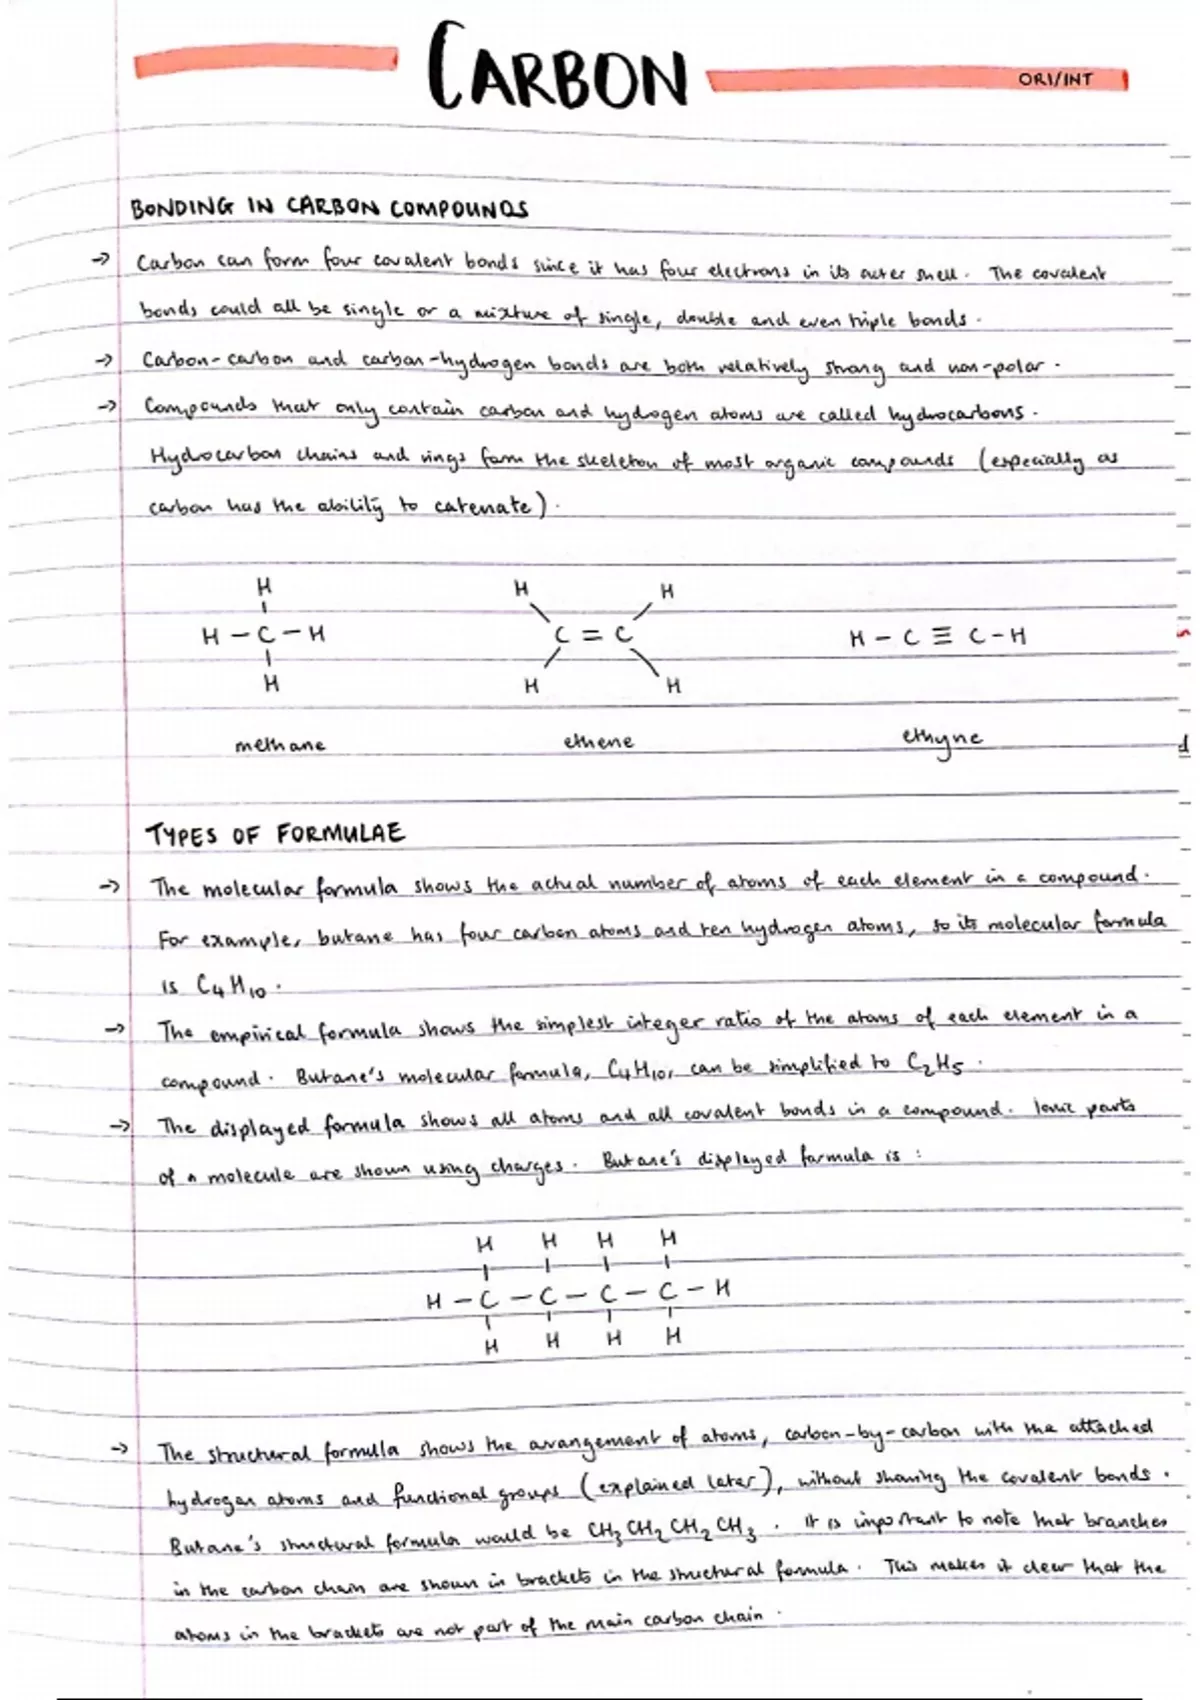 CARBON
ORI/INT
BONDING IN CARBON COMPOUNDS
→ Carbon can form four covalent bonds since it has four electrons in its outer shell. The covalent
bonds could all be single or a mixture of single, double and even triple bonds.
→ Carbon-carbon and carbon-hydrogen bonds are both relatively strong and non-polar.
→ Compounds that only contain carbon and hydrogen atoms are called hydrocarbons.
Hydrocarbon chains and rings form the skeleton of most organic compounds (especially as
carbon has the ability to catenate).
H H H
H - C - H C = C H - C ≡ C - H
H H H
methane ethene ethyne
d
TYPES OF FORMULAE
→ The molecular formula shows the actual number of atoms of each element in a compound.
For example, butane has four carbon atoms and ten hydrogen atoms, so its molecular formula
is C₄H₁₀.
→ The empirical formula shows the simplest integer ratio of the atoms of each element in a
compound. Butane's molecular formula, C₄H₁₀, can be simplified to C₂H₅.
→ The displayed formula shows all atoms and all covalent bonds in a compound. Ionic parts
of a molecule are shown using charges. Butane's displayed formula is :
H H H H
H - C - C - C - C - H
H H H H
→ The structural formula shows the arrangement of atoms, carbon-by-carbon with the attached
hydrogen atoms and functional groups (explained later), without showing the covalent bonds.
Butane's structural formula would be CH₃CH₂CH₂CH₃. It is important to note that branches
in the carbon chain are shown in brackets in the structural formula. This makes it clear that the
atoms in the brackets are not part of the main carbon chain.